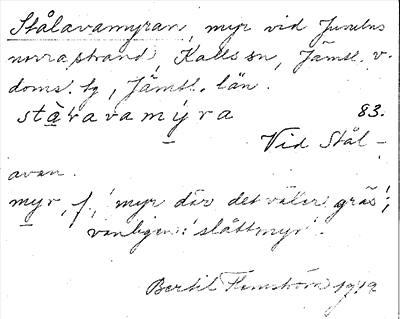 Stålavamyran, myr vid Juvulns
norra strand, Kalls sn, Jämtl. v.
doms. tg, Jämtl. län.
stàᶅavamýra 83.
Vid Stål-
avan.
myr, f., 'myr där det växer gräs';
vanligen: 'slåttmyr'.
Bertil Flemström